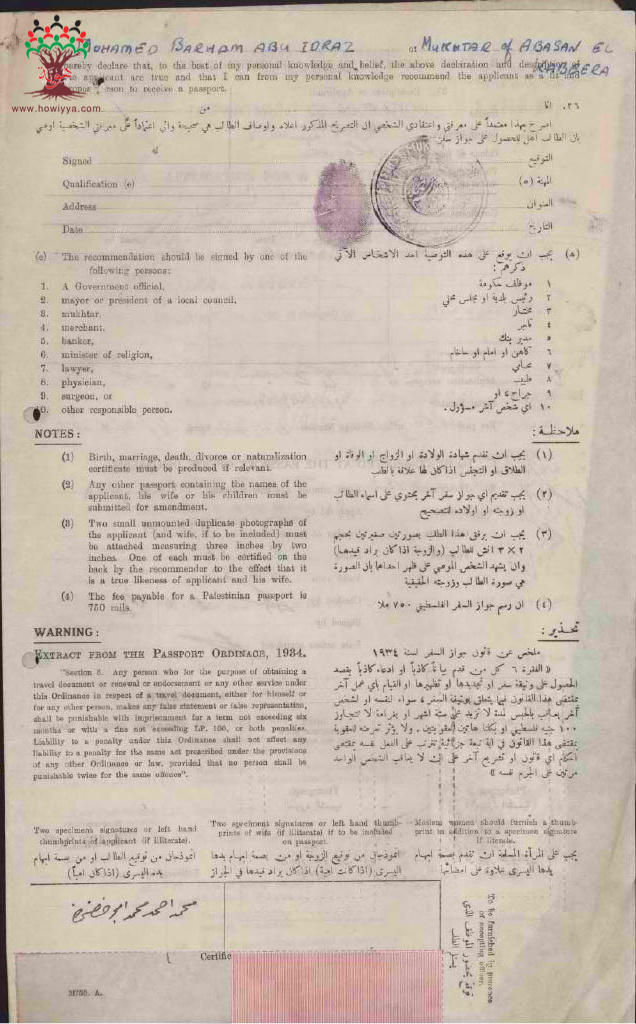 MOHAMED BARHAM ABU IDRAZ of MUKHTAR of ABASAN EL KABEERA
hereby declare that, to the best of my personal knowledge and belief, the above declaration and
applicant are true and that I can from my personal knowledge recommend the applicant as a fit and
person to receive a passport.
www.howiyya.com
٢٦. انا
من
اصرح بهذا معتمداً على معرفتي واعتقادي الشخصي ان التصريح المذكور اعلاه واوصاف الطالب هي صحيحة واني اعتماداً على معرفتي الشخصية اوصي
بان الطالب اهل للحصول على جواز سفر
Signed
التوقيع
Qualification (e)
المهنة (ه)
Address
العنوان
Date
التاريخ
(e) The recommendation should be signed by one of the
following persons:
(ه) يجب ان يوقع على هذه التوصية احد الاشخاص الآتي
ذكرهم :
1. A Government official,
١ موظف حكومة
2. mayor or president of a local council,
٢ رئيس بلدية او مجلس محلي
3. mukhtar,
٣ مختار
4. merchant,
٤ تاجر
5. banker,
٥ مدير بنك
6. minister of religion,
٦ كاهن او امام او حاخام
7. lawyer,
٧ محامي
8. physician,
٨ طبيب
9. surgeon, or
٩ جراح او
10. other responsible person.
١٠ اي شخص آخر مسؤول.
NOTES :
ملاحظة :
(1) Birth, marriage, death, divorce or naturalization
certificate must be produced if relevant.
(١) يجب ان تقدم شهادة الولادة او الزواج او الوفاة او
الطلاق او التجنس اذا كان لها علاقة بالطلب
(2) Any other passport containing the names of the
applicant, his wife or his children must be
submitted for amendment.
(٢) يجب تقديم اي جواز سفر آخر يحتوي على اسماء الطالب
او زوجته او اولاده للتصحيح
(3) Two small unmounted duplicate photographs of
the applicant (and wife, if to be included) must
be attached measuring three inches by two
inches. One of each must be certified on the
back by the recommender to the effect that it
is a true likeness of applicant and his wife.
(٣) يجب ان يرفق هذا الطلب بصورتين صغيرتين بحجم
٢ × ٣ انش للطالب (والزوجة اذا كان يراد قيدها)
وان يشهد الشخص الموصي على ظهر احداها بان الصورة
هي صورة الطالب وزوجته الحقيقية
(4) The fee payable for a Palestinian passport is
750 mils.
(٤) ان رسم جواز السفر الفلسطيني ٧٥٠ ملا
WARNING :
تحذير :
EXTRACT FROM THE PASSPORT ORDINACE, 1934.
ملخص عن قانون جواز السفر لسنة ١٩٣٤
"Section 6. Any person who for the purpose of obtaining a
travel document or renewal or endorsement or any other service under
this Ordinance in respect of a travel document, either for himself or
for any other person, makes any false statement or false representation,
shall be punishable with imprisonment for a term not exceeding six
months or with a fine not exceeding LP. 100, or both penalties.
Liability to a penalty under this Ordinance shall not affect any
liability to a penalty for the same act prescribed under the provisions
of any other Ordinance or law, provided that no person shall be
punishable twice for the same offence".
« الفقرة ٦ كل من قدم بياناً كاذباً او ادعاء كاذباً بقصد
الحصول على وثيقة سفر او تجديدها او تظهيرها او القيام بأي عمل آخر
بمقتضى هذا القانون فيما يتعلق بوثيقة السفر، سواء لنفسه او لشخص
آخر يعاقب بالحبس لمدة لا تزيد على ستة اشهر او بغرامة لا تتجاوز
١٠٠ جنيه فلسطيني او بكلتا هاتين العقوبتين. ولا يؤثر تعرضه لعقوبة
بمقتضى هذا القانون في اية تبعة جزائية تترتب على الفعل نفسه بمقتضى
احكام اي قانون او تشريع آخر على ان لا يعاقب الشخص الواحد
مرتين على الجرم نفسه »
Two specimen signatures or left hand
thumbprints of applicant (if illiterate).
Two specimen signatures or left hand thumb-
prints of wife (if illiterate) if to be included
on passport.
Moslem women should furnish a thumb-
print in addition to a specimen signature
if literate.
انموذجان من توقيع الطالب او من بصمة ابهام
يده اليسرى (اذا كان امياً)
انموذجان من توقيع الزوجة او من بصمة ابهام يدها
اليسرى (اذا كانت امية) اذا كان يراد قيدها في الجواز
يجب على المرأة المسلمة ان تقدم بصمة ابهام
يدها اليسرى علاوة على امضائها
محمد احمد محمد ابو خضرة
To be furnished in presence
or accepting officer.
توقع بحضور الموظف الذي
يستلم الطلب
Certific
M755. A.